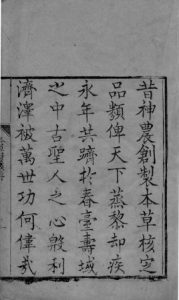 昔神農創製本草核定
品類俾天下蒸黎却疾
永年共躋於春臺壽域
之中古聖人之心殷利
濟澤被萬世功何偉哉